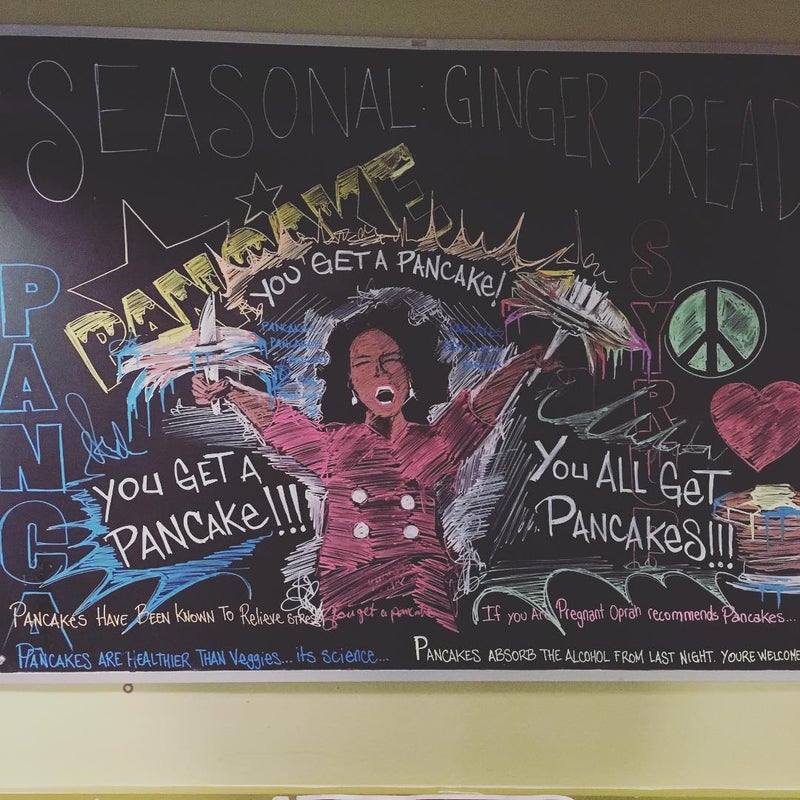 SEASONAL: GINGER BREAD
PANCAKE
YOU GET A PANCAKE!
PANCA
SYRUP
PANCAKES
YOU GET A
PANCAKE!!!
YOU ALL GET
PANCAKES!!!
PANCAKES HAVE BEEN KNOWN TO Relieve stress
You get a pancake
If you Are Pregnant Oprah recommends Pancakes...
PANCAKES ARE HEALTHIER THAN Veggies... its science...
PANCAKES ABSORB THE ALCOHOL FROM LAST NIGHT. YOURE WELCOME